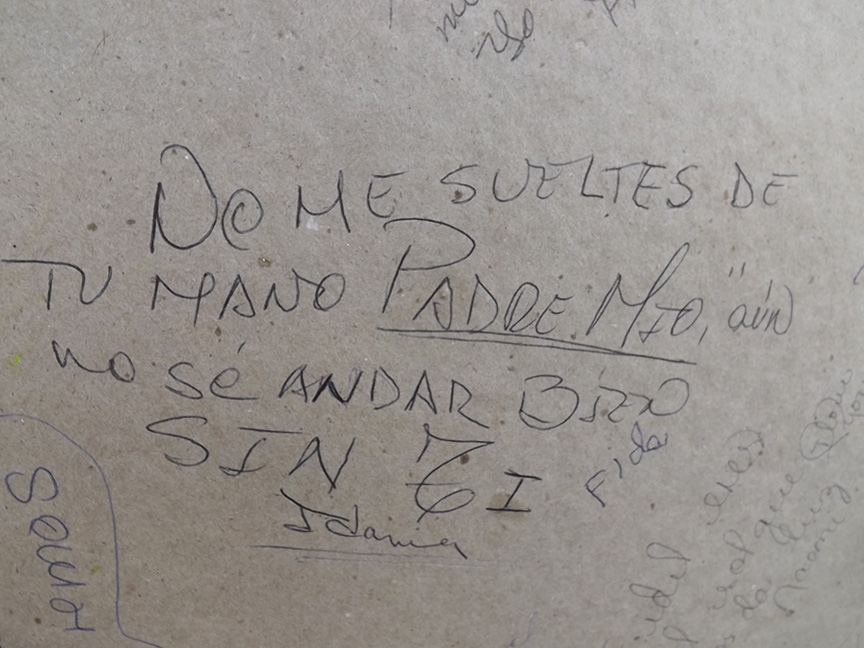 NO ME SUELTES DE
TU MANO PADRE MIO, "aún
no sé ANDAR BIEN
SIN TI
Idania
Fide